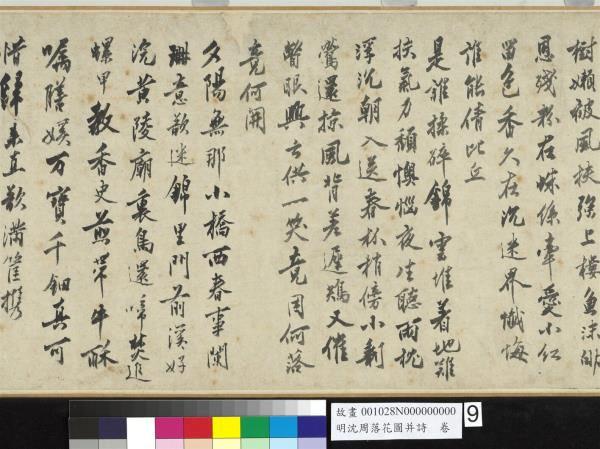 樹懶被風扶強上樓魚沫欱
恩殘粉在蛛絲牽愛小紅
留色香久在沉迷界懺悔
誰能倩比丘
是誰揉碎錦雲堆着地難
扶氣力頹懊惱夜生聽雨枕
浮沉朝入送春杯梢傍小剩
鶯還掠風背差遲鴆又催
瞥眼興亡供一笑竟因何落
竟何開
夕陽無那小橋西春事闌
珊意欲迷錦里門前溪好
浣黃陵廟裏鳥還啼焚追
螺甲教香史煎帶牛酥
囑膳娭万寶千鈿真可
惜歸来直欲滿筐攜
故畫 001028N000000000
明沈周落花圖并詩　卷
9